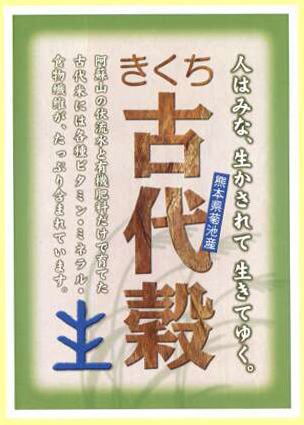 人はみな、生かされて 生きてゆく。
熊本県菊池産
きくち
古代穀
阿蘇山の伏流水と有機肥料だけで育てた
古代米には各種ビタミン・ミネラル・
食物繊維が、たっぷり含まれています。